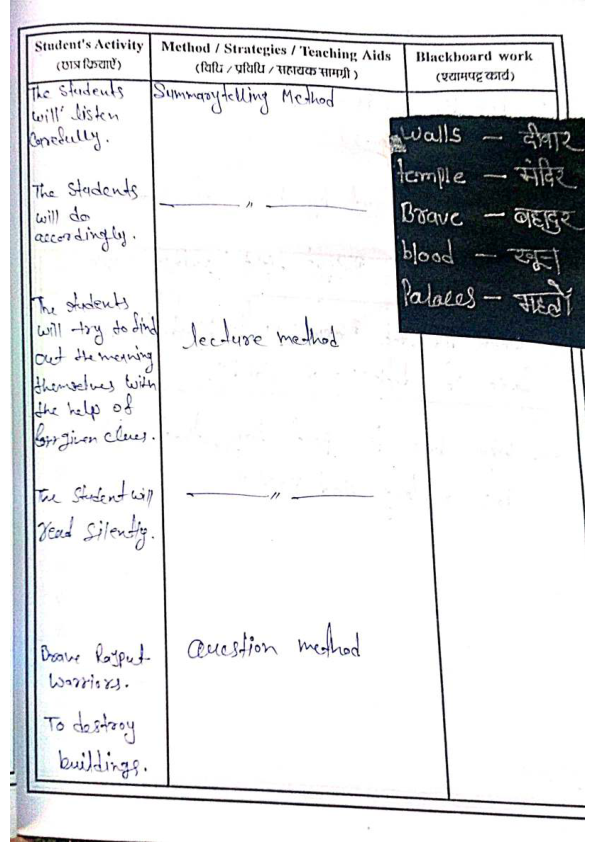 Student's Activity
(छात्र क्रियाएँ)
Method / Strategies / Teaching Aids
(विधि / प्रविधि / सहायक सामग्री)
Blackboard work
(श्यामपट्ट कार्य)
The Students
will listen
Carefully.
Summarytelling Method
walls – दीवार
temple – मंदिर
Brave – बहादुर
blood – खून
Palaces – महलों
The Students
will do
accordingly.
— " —
The students
will try to find
out the meaning
themselves with
the help of
given clues.
lecture method
The Student will
read silently.
— " —
Brave Rajput
Warriors.
To destroy
buildings.
Question method